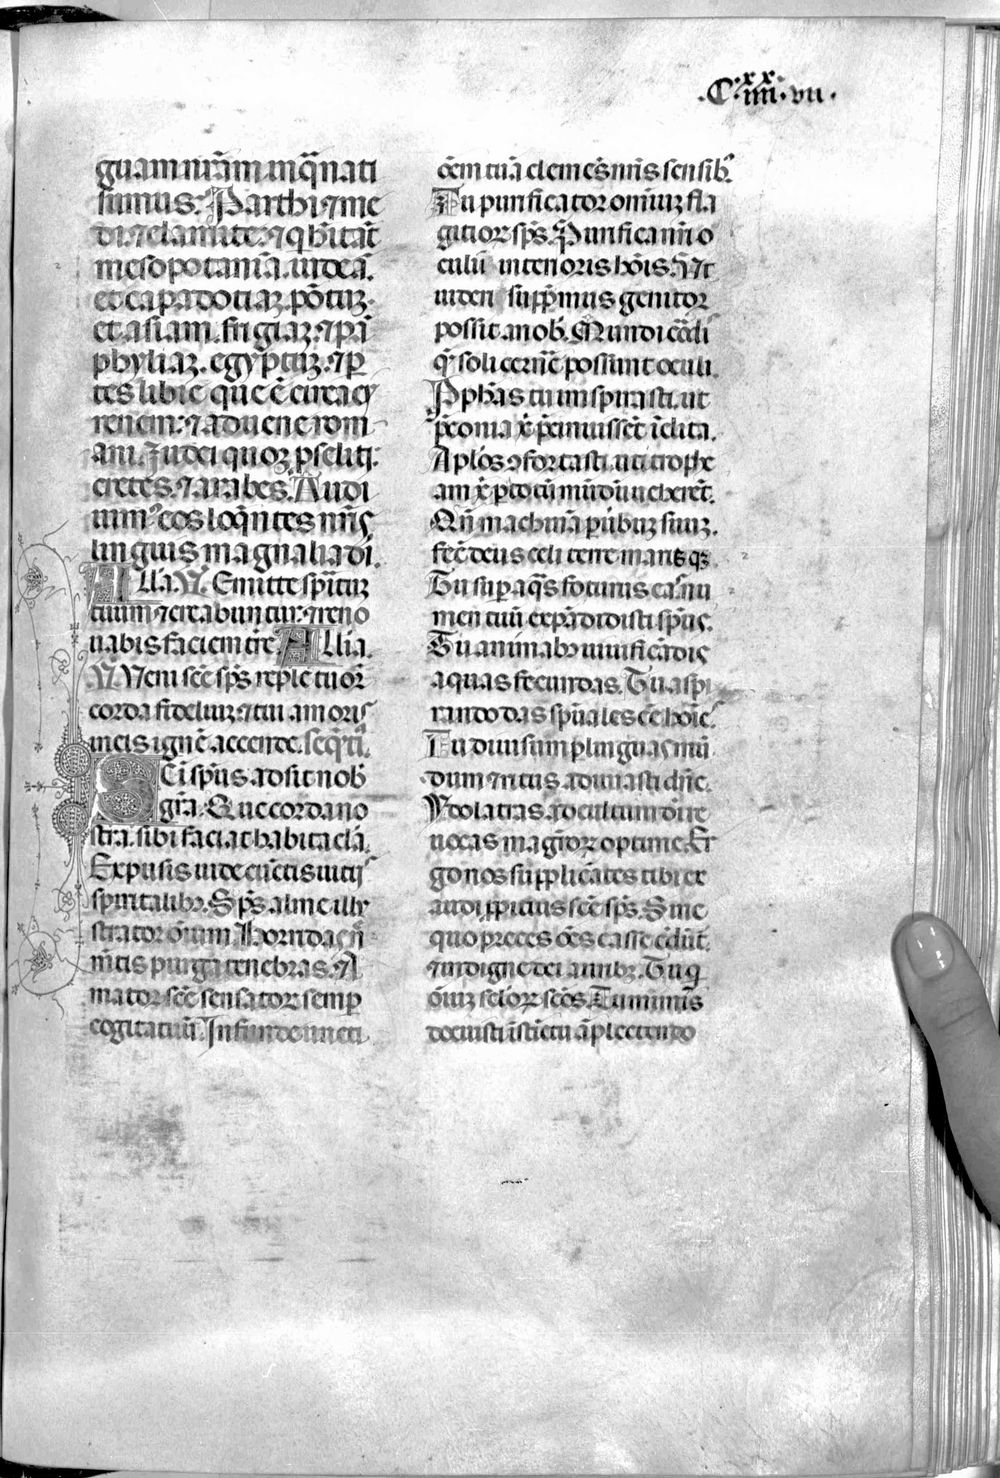 .C.xx iiii.vii.
guam nr̄am in q̄ nati
sumus: Parthi ⁊ me
di ⁊ elamite: ⁊ q̄ hītāt
mesopotaniā. iudeā.
et capadotiaꝫ. pōtuꝫ.
et asiam. frigiaꝫ. ⁊ pā
phyliaꝫ. egyptuꝫ. ⁊ ꝑ
tes libie que ē circa cy
renem: ⁊ aduene rom
ani. Judei quoꝫ ꝓseliti.
cretes. ⁊ arabes. Audi
uim⁹ eos loq̄ntes nr̄is
linguis magnalia dī.
Alla. V. Emitte spūtuꝫ
tuum ⁊ creabuntur: ⁊ reno
uabis faciem tr̄e. Allia.
V. Veni scē sp̄s reple tuoꝝ
corda fideliuꝫ: ⁊ tui amoris
in eis ignē accende. seq̄tia.
Sc̄i sp̄us adsit nob̄
gr̄a. Que corda no
stra. sibi faciat habitaclā.
Expulsis inde cūctis uitijs
spiritalibꝫ. Sp̄s alme illu
strator ōium. Horridas n̄r̄
mētis purga tenebras. A
mator scē sensatoꝝ semꝑ
cogitatuū. Infunde uncti
ōem tuā clemēs nr̄is sensibꝫ.
Tu purificator omniuꝫ fla
gitioꝝ sp̄s. Purifica nr̄i o
culū interioris hōis. Ut
uideri supp̄mus genitor
possit a nob̄. Mundi cōdis
q̄ soli cernē possunt oculi.
Pphās tu inspirasti. ut
p̄conia xp̄i p̄cinuissēt īclita.
Aplōs ꝯfortasti. uti trophe
am xp̄i ꝑ totū mūdū ueherēt.
Qn̄ machinā ꝑ ūbuꝫ suuꝫ.
fecit deus celi terre marisqꝫ.
Tu suꝑ aq̄s foturus eas nu
men tuū expādidisti spūs.
Tu animabꝫ uiuificādis
aquas fecundas. Tu aspi
rando das spūales ēē hoīēs.
Tu diuisum ꝑ linguas mū
dum ⁊ ritus adunasti dn̄e.
Ydolatras ad cultum dei re
uocas magr̄oꝝ optime. Er
go nos supplicātes tibi ex
audi ꝓpicius scē sp̄s. Sine
quo preces ōes casse credūt.
⁊ indigne dei auribꝫ. Tu q̄
ōiuꝫ seloꝝ scōs. Tu nr̄is
docuisti īstīctu āplectendo